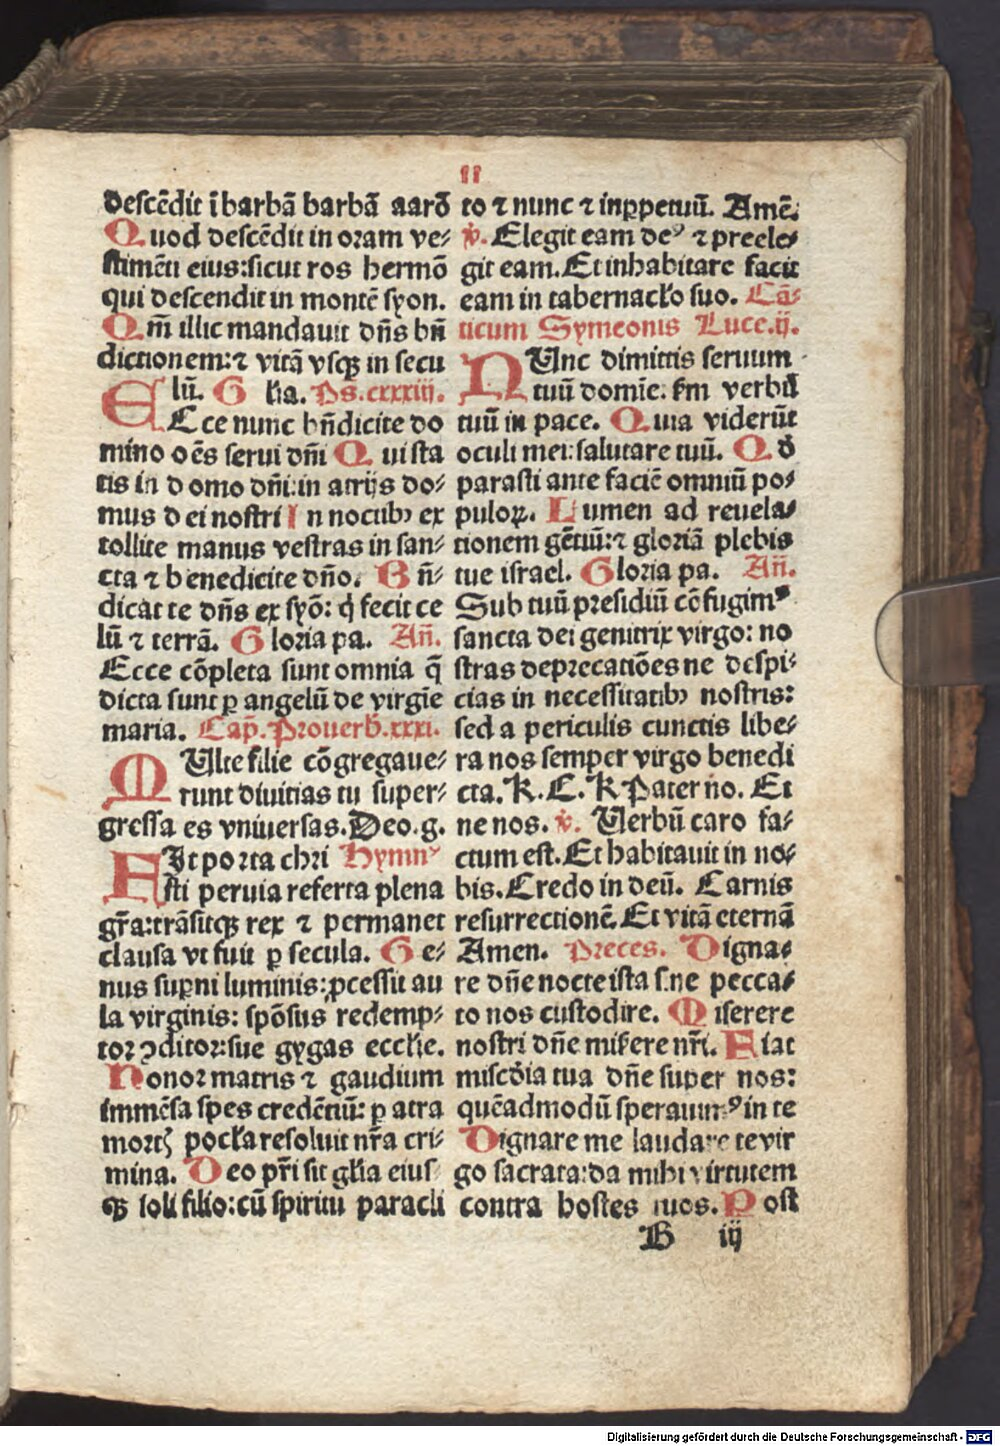 11
descēdit ī barbā barbā aarō
Quod descēdit in oram ve⸗
stimēti eius:sicut ros hermō
qui descendit in montē syon.
Qm̄ illic mandauit dn̄s bn̄
dictionem:⁊ vitā vsqꝫ in secu
lū. G lia. Ps.cxxxiij.
ECce nunc bn̄dicite do
mino oēs serui dn̄i Qui sta
tis in domo dn̄i:in atrijs do⸗
mus dei nostri In noctibꝰ ex
tollite manus vestras in san⸗
cta ⁊ benedicite dn̄o. Bn̄⸗
dicat te dn̄s ex syō: q̄ fecit ce
lū ⁊ terrā. Gloria pa. An̄.
Ecce cōpleta sunt omnia q̄
dicta sunt ꝑ angelū de virgīe
maria. Cap̄. Prouerb̄.xxxi.
MUlte filie cōgregaue⸗
runt diuitias tu super⸗
gressa es vniuersas.Deo.g.
FIt porta chri Hymnꝰ
sti peruia referta plena
gr̄a:trāsitqꝫ rex ⁊ permanet
clausa vt fuit ꝑ secula. Ge⸗
nus suꝑni luminis:ꝓcessit au
la virginis: spōsus redemp⸗
tor ꝯditor:sue gygas eccl̄ie.
Honor matris ⁊ gaudium
immēsa spes credētiū: ꝑ atra
mortꝭ pocl̄a resoluit nr̄a cri⸗
mina. Deo pr̄i sit gl̄ia eius⸗
qꝫ soli filio:cū spiritu paracli
to ⁊ nunc ⁊ inꝑpetuū. Amē.
℣. Elegit eam deꝰ ⁊ preele⸗
git eam.Et inhabitare facit
eam in tabernacl̄o suo. Cā⸗
ticum Symeonis Luce.ij.
NUnc dimittis seruum
tuū domīe. km̄ verbū
tuū in pace. Quia viderūt
oculi mei:salutare tuū. Qd̄
parasti ante faciē omniū po⸗
puloꝝ. Lumen ad reuela⸗
tionem gētiū:⁊ gloriā plebis
tue israel. Gloria pa. An̄.
Sub tuū presidiū cōfugimꝰ
sancta dei genitrix virgo: no
stras deprecatiōes ne despi⸗
cias in necessitatibꝰ nostris:
sed a periculis cunctis libe⸗
ra nos semper virgo benedi
cta. K. C. K Pater no. Et
ne nos. ℣. Verbū caro fa⸗
ctum est.Et habitauit in no⸗
bis.Credo in deū. Carnis
resurrectionē.Et vitā eternā
Amen. Preces. Digna⸗
re dn̄e nocte ista sine pecca⸗
to nos custodire. Miserere
nostri dn̄e mis̄ere nr̄i. Fiat
miscd̄ia tua dn̄e super nos:
quēadmodū sperauimꝰ in te
Dignare me laudare te vir
go sacrata:da mihi virtutem
contra hostes tuos. Post
B iij
Digitalisierung gefördert durch die Deutsche Forschungsgemeinschaft - DFG